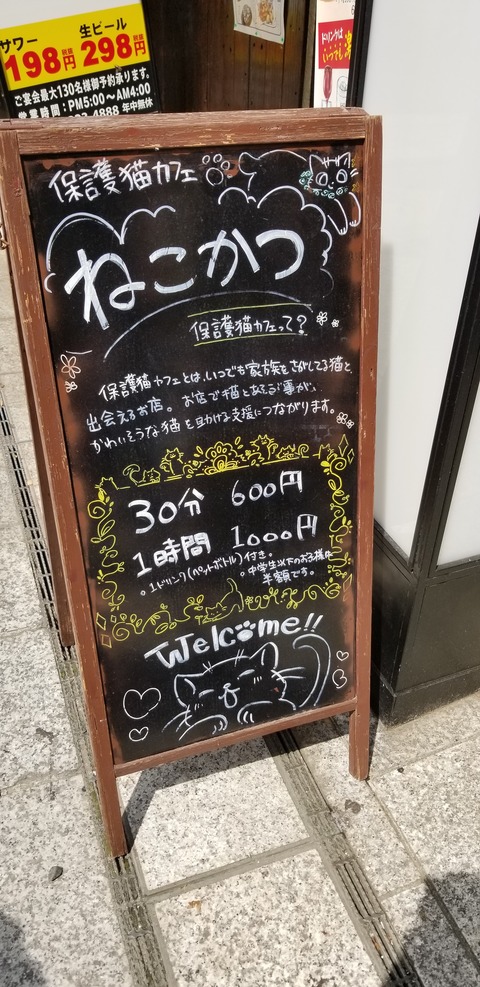 サワー
198円 税抜
生ビール
298円 税抜
ご宴会最大130名様御予約承ります。
営業時間：PM5:00～AM4:00
4888 年中無休
ドリンクは
いつでも
保護猫カフェ
ねこかつ
保護猫カフェって？
保護猫カフェとは、いつでも家族をさがしてる猫と、
出会えるお店。お店で猫とあそぶ事が、
かわいそうな猫を助ける支援につながります。
30分 600円
1時間 1000円
。1ドリンク(ペットボトル)付き。
。中学生以下のお子様は
半額です。
Welcome!!